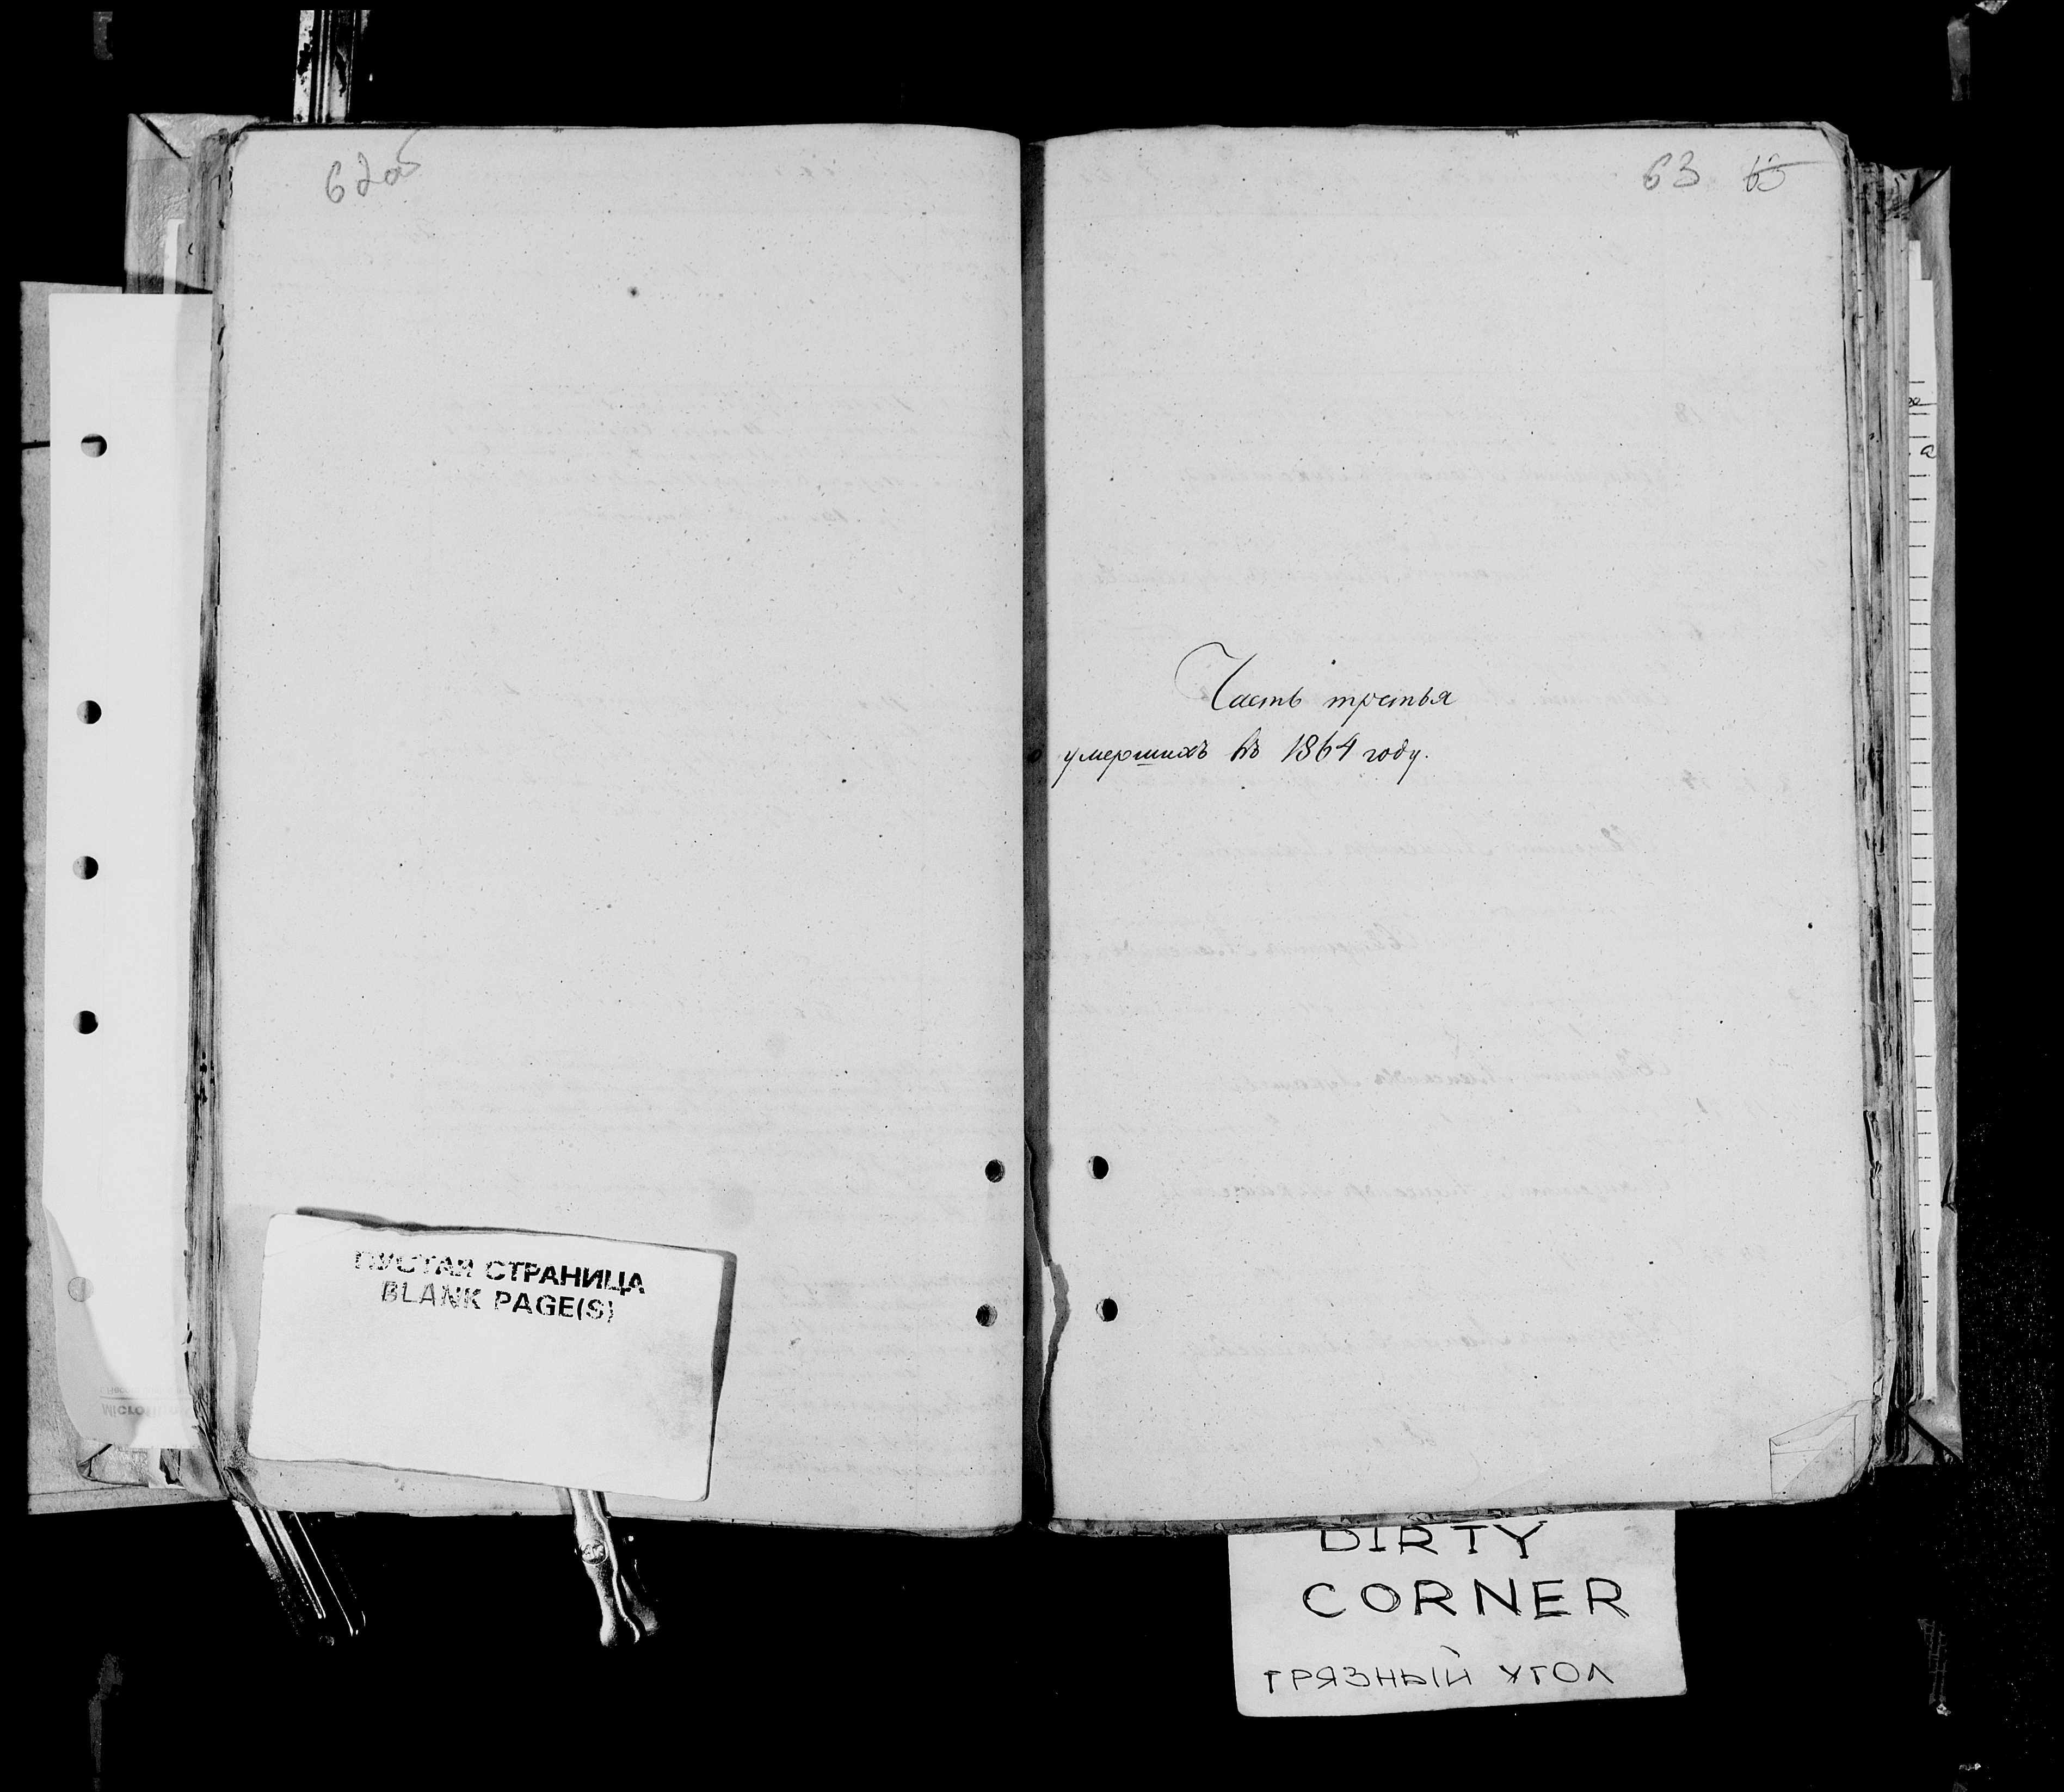 63 65
Часть третья
умершихъ въ 1864 году.
ПУСТАЯ СТРАНИЦА
BLANK PAGE(S)
DIRTY
CORNER
ГРЯЗНЫЙ УГОЛ